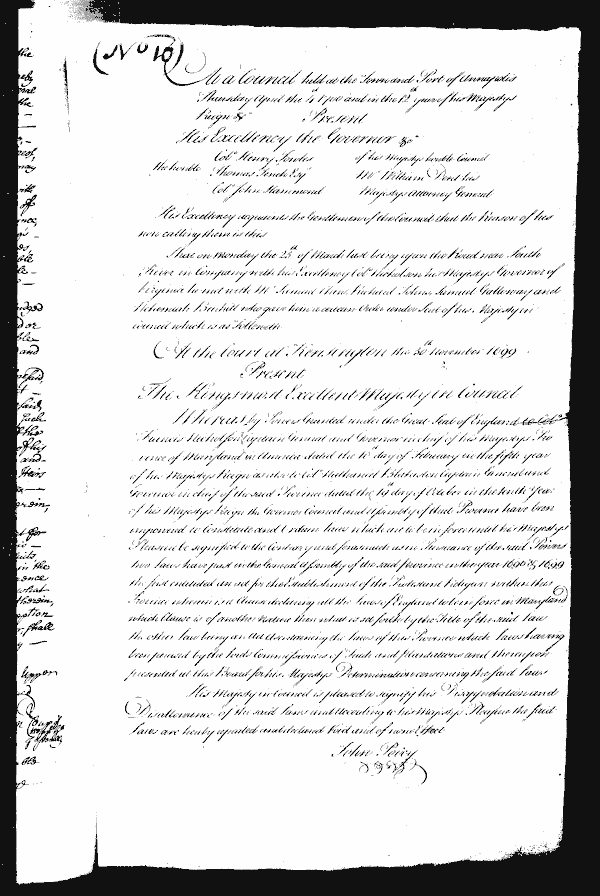 (No 10)
At a Council held at the Town and Port of Annapolis
Thursday April the 4th 1700 and in the 12th year of his Majestys
Reign &c Present
His Excellency the Governor &c
Colo Henry Jowles of his Majestys honble Council
the honble Thomas Tench Esqr Mr William Dent his
Colo John Hammond Majestys Attorney General
His Excellency acquaints the Gentlemen of the Council that the Reason of his
now calling them is this
That on monday the 25th of March last being upon the Road near South
River in Company with his Excellency Colo Nicholson his Majestys Governor of
Virginia he met with Mr Samuel Richard Johns Samuel Galloway and
Nehemiah Birckhill who gave him a certain Order under Seal of his Majesty in
council which is as Followeth
At the Court at Kensington the 30th November 1699
Present
The Kings most Excellent Majesty in Council
Whereas by Powers Granted under the Great Seal of England to Colo
Francis Nicholson Captain General and Governor in chief of his Majestys Pro
vince of Maryland in America dated the 10th day of February in the fifth year
of his Majestys Reign as also to Colo Nathaniel Blakiston Captain General and
Governor in chief of the said Province dated the 19 day of October in the tenth Year
of his Majestys Reign the Governor Council and Assembly of that Province have been
impowered to Constitute and Ordain laws which are to be in force until his Majestys
Pleasure be signified to the Contrary and forasmuch as in Pursuance of the said Powers
two laws have past in the General Assembly of the said province in the year 1696 & 1699
the first entituled an act for the Establishment of the Protestant Religion within this
Province wherein is a Clause declaring all the Laws of England to be in force in Maryland
which Clause is of another nature then what is set forth by the Title of the said law
the other law being an Act ascertaining the laws of this Province which laws having
been perused by the Lords Commissioners of Trade and plantations and thereupon
presented at this Board for his Majestys Determination concerning the said laws
His Majesty in Council is pleased to signify his Disapprobation and
Disallowance of the said laws and According to his Majestys Pleasure the said
laws are hereby repealed and declared Void and of none Effect
John Povey